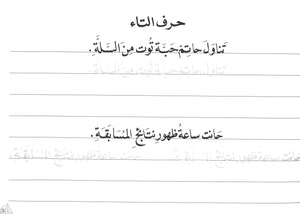 حرف التاء
تَناوَلَ حاتِمْ حَبَّة تُوت مِنَ السَّلَّةِ.
تناول حاتم حبة توت من السلة.
حَانت ساعةُ ظهورِ نتَائِجِ المُسَابَقَةِ.
حانت ساعة ظهور نتائج المسابقة. حانت ساعة ظهور نتائج المسابقة.